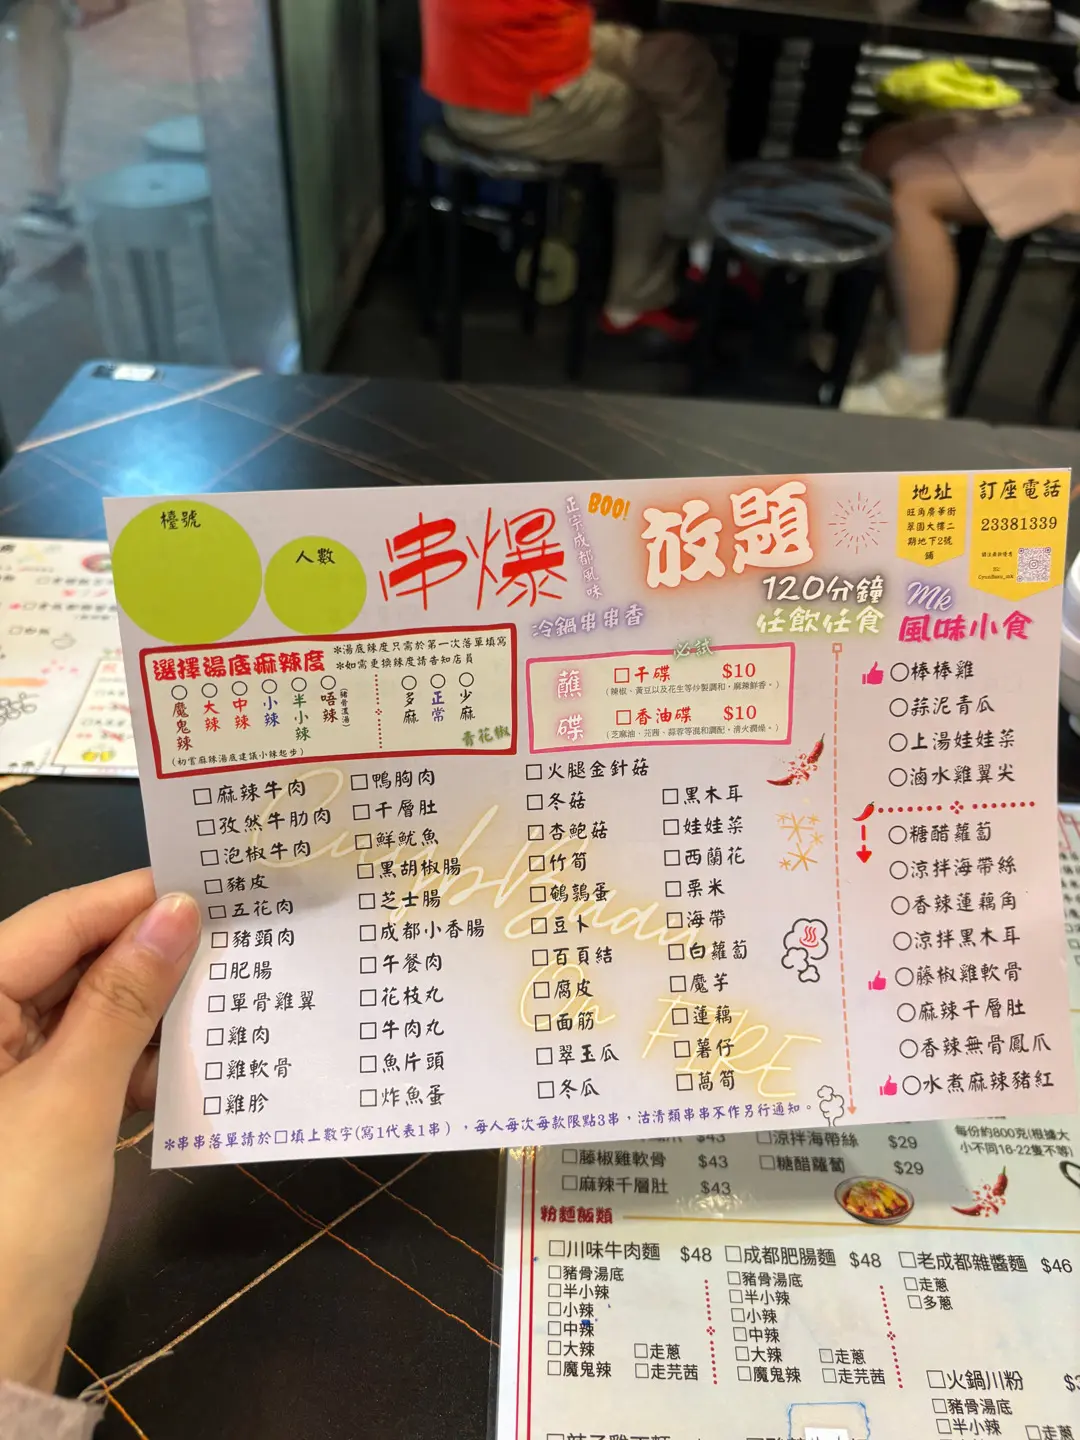 檯號
人數
串爆
正宗成都風味
BOO!
放題
冷鍋串串香
120分鐘
任飲任食
地址
旺角廣華街
翠園大樓二
期地下2號
舖
訂座電話
23381339
Mk
風味小食
選擇湯底麻辣度
*湯底辣度只需於第一次落單填寫
*如需更換辣度請告知店員
○魔鬼辣
○大辣
○中辣
○小辣
○半小辣
○唔辣
(豬骨濃湯)
○多麻
○正常
○少麻
青花椒
(初嘗麻辣湯底建議小辣起步)
必試
蘸碟
□干碟 $10
(辣椒、黃豆以及花生等炒製調和，麻辣鮮香。)
□香油碟 $10
(芝麻油、芫茜、蒜蓉等混和調配，清火潤燥。)
□麻辣牛肉
□孜然牛肋肉
□泡椒牛肉
□豬皮
□五花肉
□豬頸肉
□肥腸
□單骨雞翼
□雞肉
□雞軟骨
□雞胗
□鴨胸肉
□千層肚
□鮮魷魚
□黑胡椒腸
□芝士腸
□成都小香腸
□午餐肉
□花枝丸
□牛肉丸
□魚片頭
□炸魚蛋
□火腿金針菇
□冬菇
□杏鮑菇
□竹筍
□鵪鶉蛋
□豆卜
□百頁結
□腐皮
□面筋
□翠玉瓜
□冬瓜
□黑木耳
□娃娃菜
□西蘭花
□粟米
□海帶
□白蘿蔔
□魔芋
□蓮藕
□薯仔
□萵筍
On FIRE
○棒棒雞
○蒜泥青瓜
○上湯娃娃菜
○滷水雞翼尖
○糖醋蘿蔔
○涼拌海帶絲
○香辣蓮藕角
○涼拌黑木耳
○藤椒雞軟骨
○麻辣千層肚
○香辣無骨鳳爪
○水煮麻辣豬紅
*串串落單請於□填上數字(寫1代表1串)，每人每次每款限點3串，沽清類串串不作另行通知。
$43
□涼拌海帶絲 $29
□藤椒雞軟骨 $43
□糖醋蘿蔔 $29
□麻辣千層肚 $43
每份約800克(根據大
小不同16-22隻不等)
粉麵飯類
□川味牛肉麵 $48
□豬骨湯底
□半小辣
□小辣
□中辣
□大辣 □走蔥
□魔鬼辣 □走芫茜
□成都肥腸麵 $48
□豬骨湯底
□半小辣
□小辣
□中辣
□大辣 □走蔥
□魔鬼辣 □走芫茜
□老成都雜醬麵 $46
□走蔥
□多蔥
□火鍋川粉
□豬骨湯底
□半小辣 □走蔥